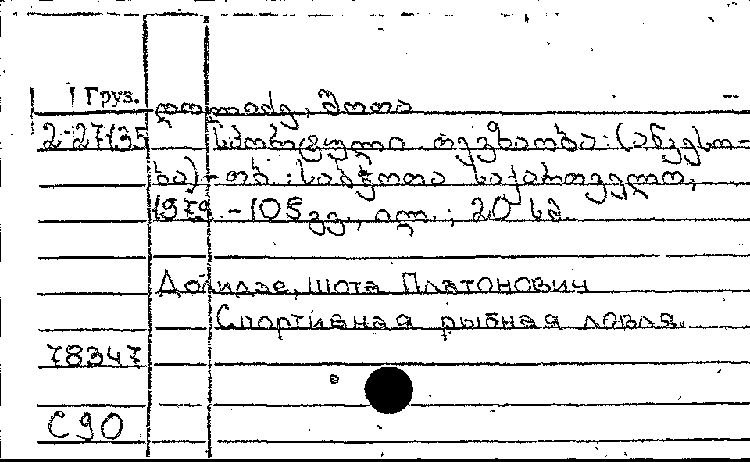 Груз.
დოლიძე, შოთა
2-27135 სპორტული თევზაობა: (ანკესი-
ხა)-თბ.:საბჭოთა საქართველო,
1979.-105 გვ., ილ.; 20 სმ.
Долидзе, Шота Платонович
Спортивная рыбная ловля.
78347
С90